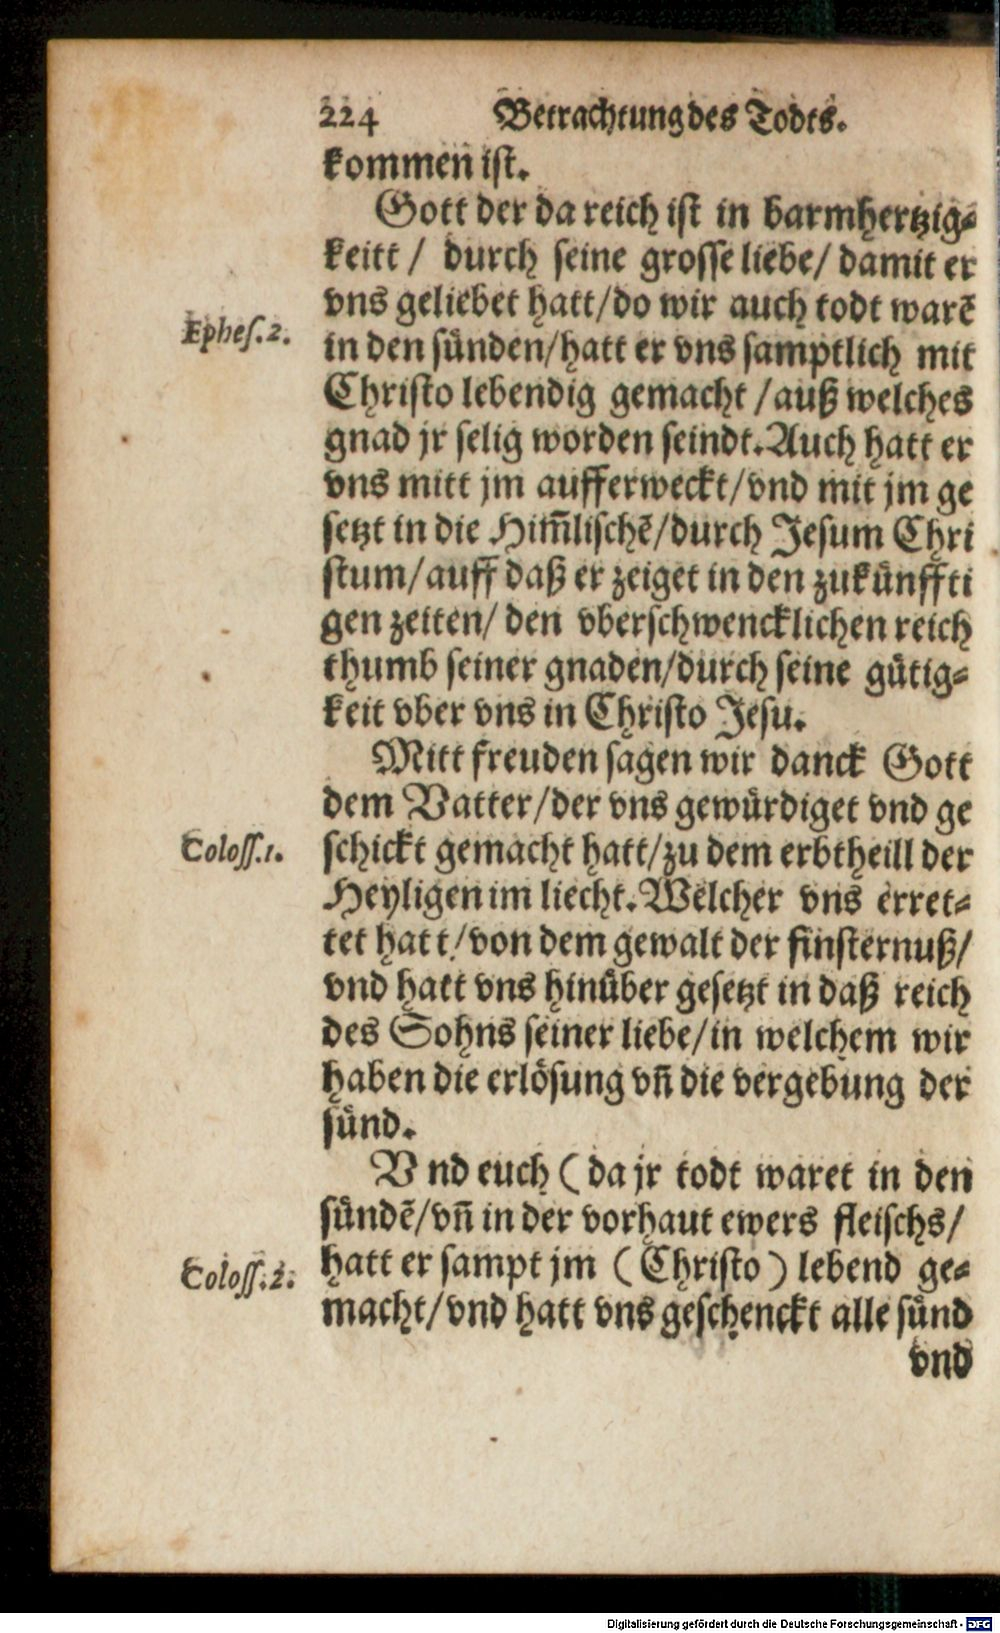 224 Betrachtung des Todts.
kommen ist.
Gott der da reich ist in barmhertzig⸗
keitt / durch seine grosse liebe/ damit er
vns geliebet hatt/do wir auch todt warē
Ephes.2.
in den sünden/hatt er vns samptlich mit
Christo lebendig gemacht /auß welches
gnad jr selig worden seindt.Auch hatt er
vns mitt jm aufferweckt/vnd mit jm ge
setzt in die Him̄lischē/durch Jesum Chri
stum/auff daß er zeiget in den zukünffti
gen zeiten/ den vberschwencklichen reich
thumb seiner gnaden/durch seine gütig⸗
keit vber vns in Christo Jesu.
Mitt freuden sagen wir danck Gott
dem Vatter/der vns gewürdiget vnd ge
Coloss.1.
schickt gemacht hatt/zu dem erbtheill der
Heyligen im liecht.Welcher vns erret⸗
tet hatt/von dem gewalt der finsternuß/
vnd hatt vns hinüber gesetzt in daß reich
des Sohns seiner liebe/in welchem wir
haben die erlösung vn̄ die vergebung der
sünd.
Vnd euch (da jr todt waret in den
sündē/vn̄ in der vorhaut ewers fleischs/
Coloss.2.
hatt er sampt jm (Christo) lebend ge⸗
macht/vnd hatt vns geschenckt alle sünd
vnd
Digitalisierung gefördert durch die Deutsche Forschungsgemeinschaft - DFG